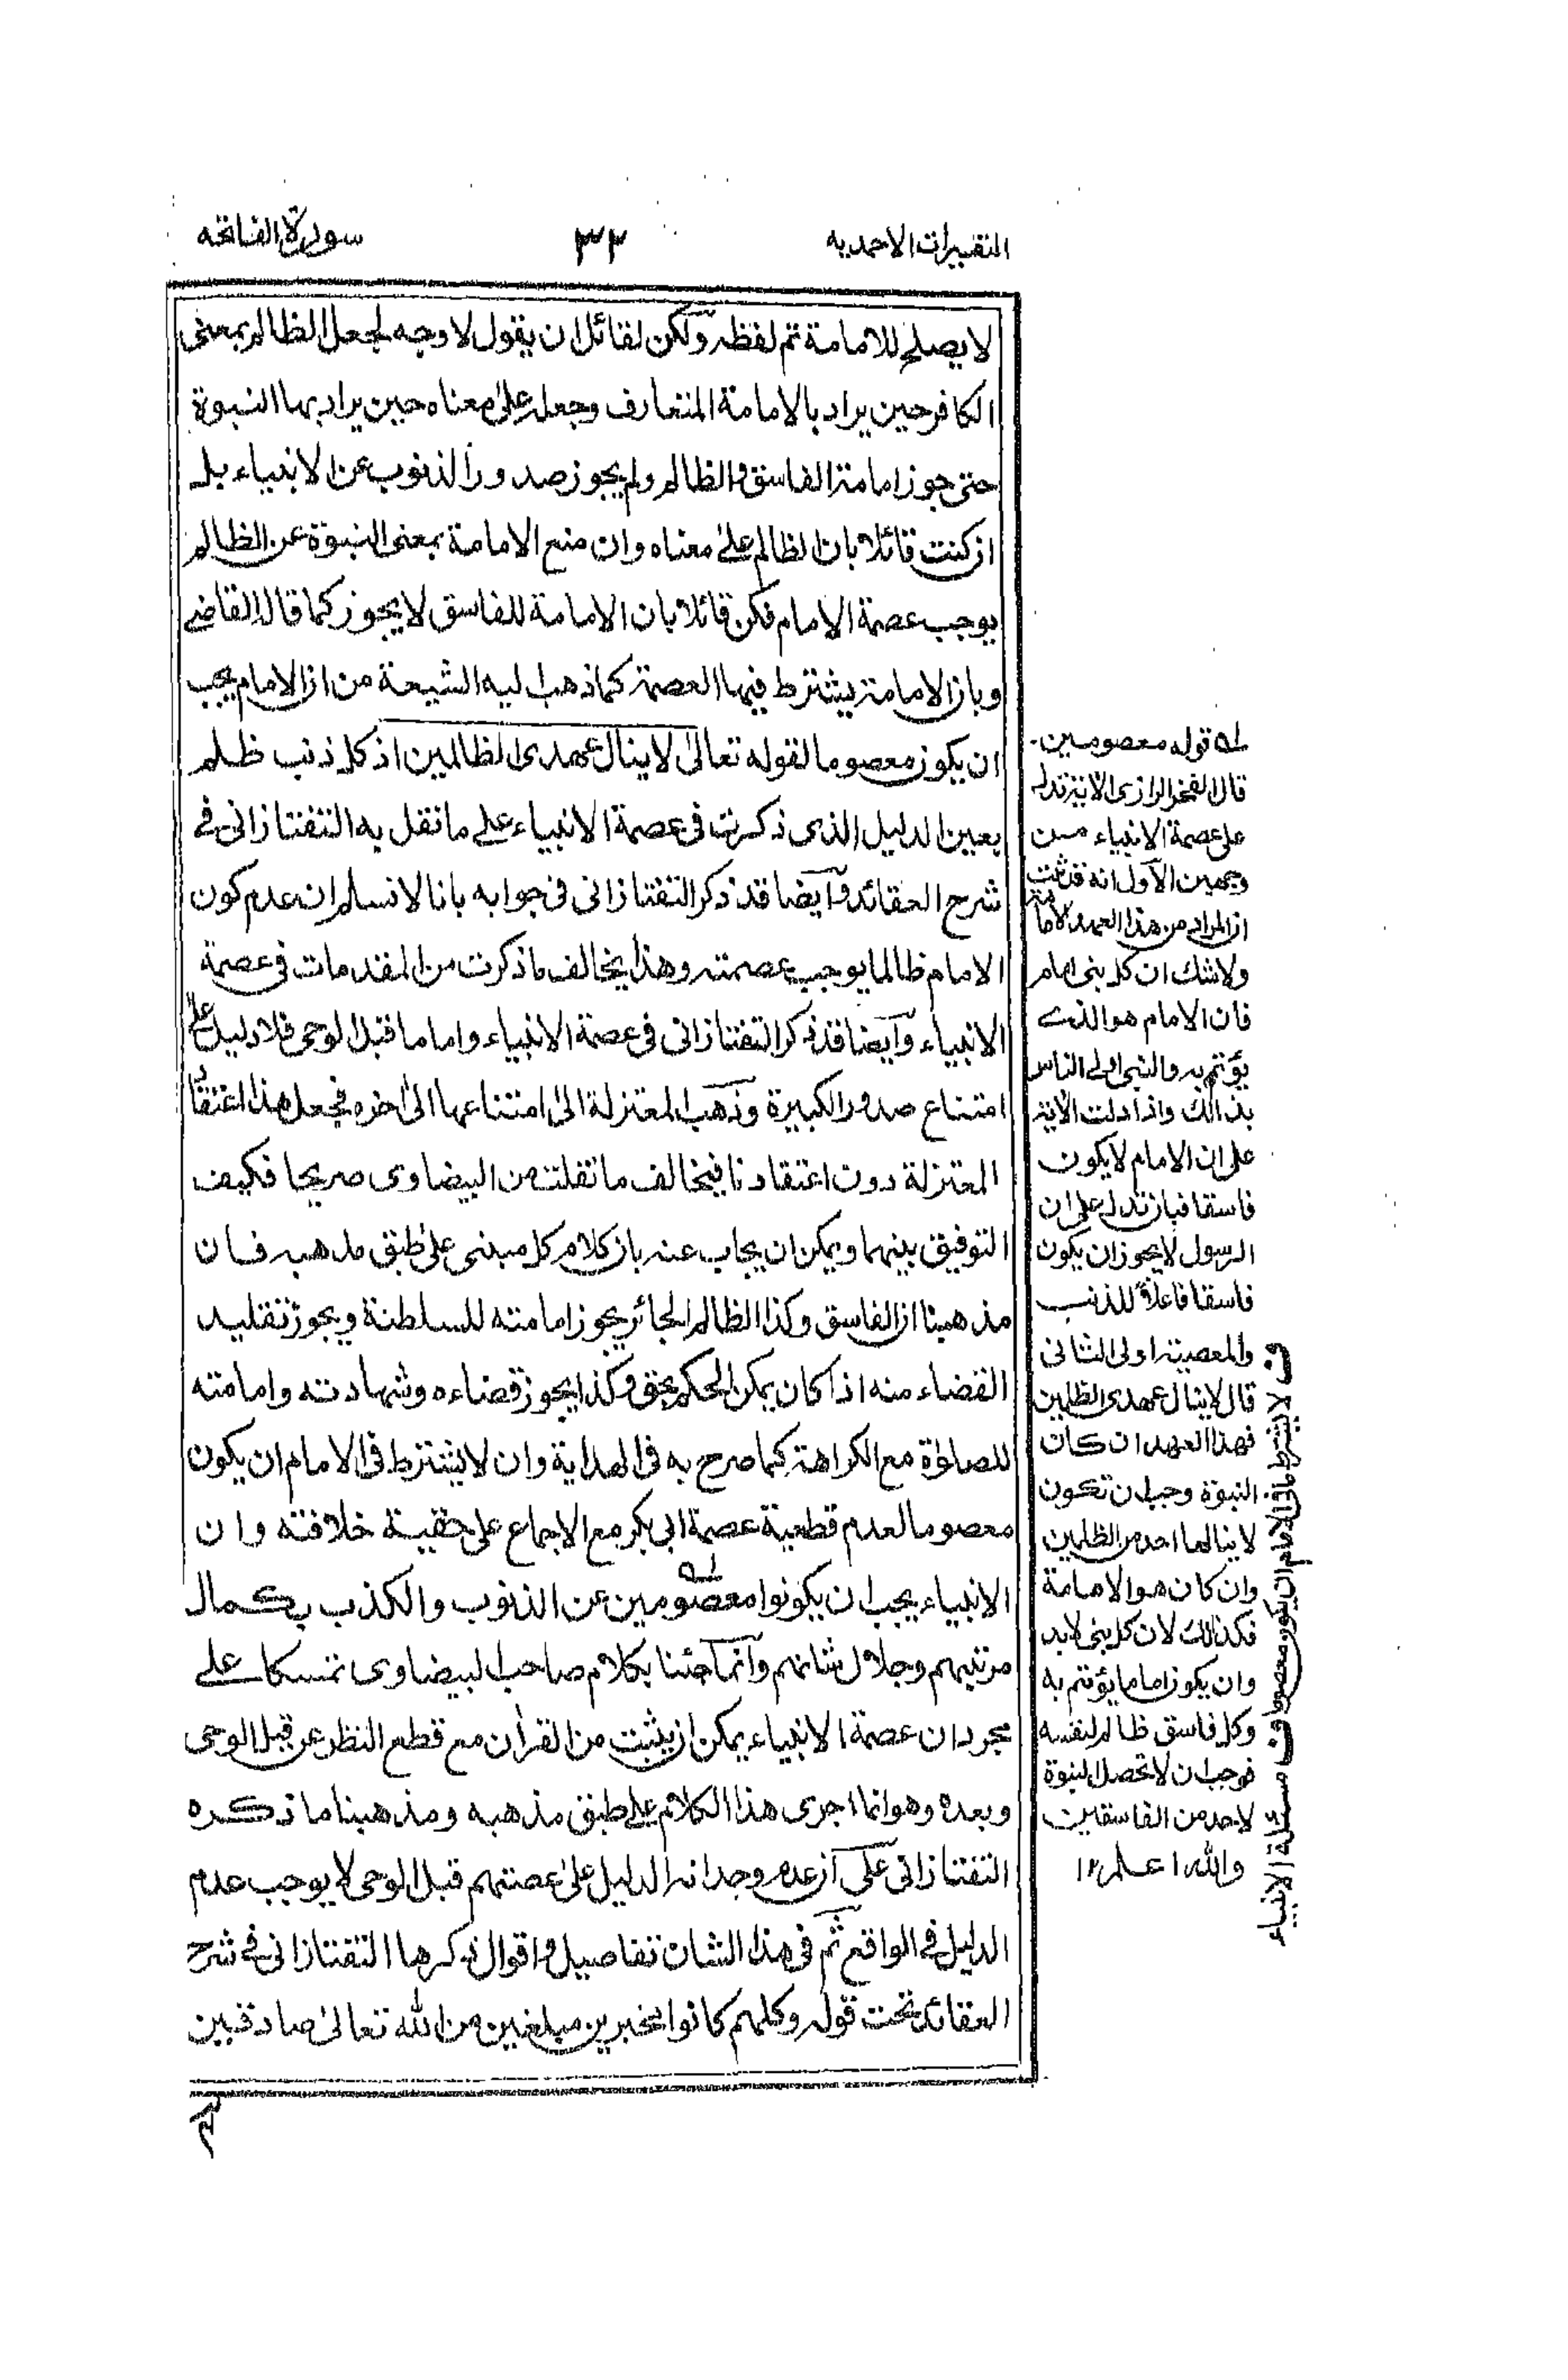 التفسيرات الاحمديه
٣٣
سورة الفاتحه
لا يصلح للامامة تم لفظه ولكن لقائل ان يقول لا وجه لجعل الظالم بمعنى
الكافر حين يراد بالامامة المتعارف وجعله على معناه حين يراد بها النبوة
حتى جوز امامة الفاسق والظالم ولم يجوز صدور الذنوب عن الانبياء بل
ان كنت قائلا بان الظالم على معناه وان منع الامامة بمعنى النبوة عن الظالم
يوجب عصمة الامام فكن قائلا بان الامامة للفاسق لا يجوز كما قال القاضي
وبان الامامة يشترط فيها العصمة كما ذهب اليه الشيعة من ان الامام يجب
ان يكون معصوما لقوله تعالى لا ينال عهدى الظالمين اذ كل ذنب ظلم
بعين الدليل الذى ذكرت فى عصمة الانبياء على ما نقل به التفتازانى فى
شرح العقائد وايضا قد ذكر التفتازانى فى جوابه بانا لا نسلم ان عدم كون
الامام ظالما يوجب عصمته وهذا يخالف ما ذكرت من المقدمات فى عصمة
الانبياء وايضا قد ذكر التفتازانى فى عصمة الانبياء واما ما قبل الوحى فلا دليل على
امتناع صدور الكبيرة وذهب المعتزلة الى امتناعها الى اخره فجعل هذا اعتقاد
المعتزلة دون اعتقادنا فيخالف ما نقلت من البيضاوى صريحا فكيف
التوفيق بينهما ويمكن ان يجاب عنه بان كلام كل مبنى على طبق مذهبه فان
مذهبنا ان الفاسق وكذا الظالم الجائر يجوز امامته للسلطنة ويجوز تقليد
القضاء منه اذا كان يمكن الحكم بحق وكذا يجوز قضاءه وشهادته وامامته
للصلوة مع الكراهة كما صرح به فى الهداية وان لا يشترط فى الامام ان يكون
معصوما لعدم قطعية عصمة ابى بكر مع الاجماع على حقية خلافته وان
الانبياء يجب ان يكونوا معصومين عن الذنوب والكذب بكمال
مرتبتهم وجلال شانهم وانما جئنا بكلام صاحب البيضاوى تمسكا على
مجرد ان عصمة الانبياء يمكن ان يثبت من القرأن مع قطع النظر عن قبل الوحى
وبعده وهو انما اجرى هذا الكلام على طبق مذهبه ومذهبنا ما ذكره
التفتازانى على ان عدم وجدانه الدليل على عصمتهم قبل الوحى لا يوجب عدم
الدليل فى الواقع ثم فى هذا الشان تفاصيل واقوال ذكرها التفتازانى فى شرح
العقائد تحت قوله وكلهم كانوا مخبرين مبلغين من الله تعالى صادقين
له قوله معصومين.
قال الفخر الرازى الاية تدل
على عصمة الانبياء من
وجهين الاول انه قد ثبت
ان المراد من هذا العهد الامامة
ولا شك ان كل نبى امام
فان الامام هو الذى
يؤتم به والنبى اولى الناس
بذالك واذا دلت الاية
على ان الامام لا يكون
فاسقا فبان تدل على ان
الرسول لا يجوز ان يكون
فاسقا فاعلا للذنب
والمعصية اولى الثانى
قال لا ينال عهدى الظلمين
فهذا العهد ان كان
النبوة وجب ان تكون
لا ينالها احد من الظلمين
وان كان هو الامامة
فكذالك لان كل نبى لابد
وان يكون اماما يؤتم به
وكل فاسق ظالم لنفسه
فوجب ان لا تحصل النبوة
لاحد من الفاسقين
والله اعلم ١٢
ف لا يشترط فى الامام ان يكون معصوما
ف مسئلة الانبياء